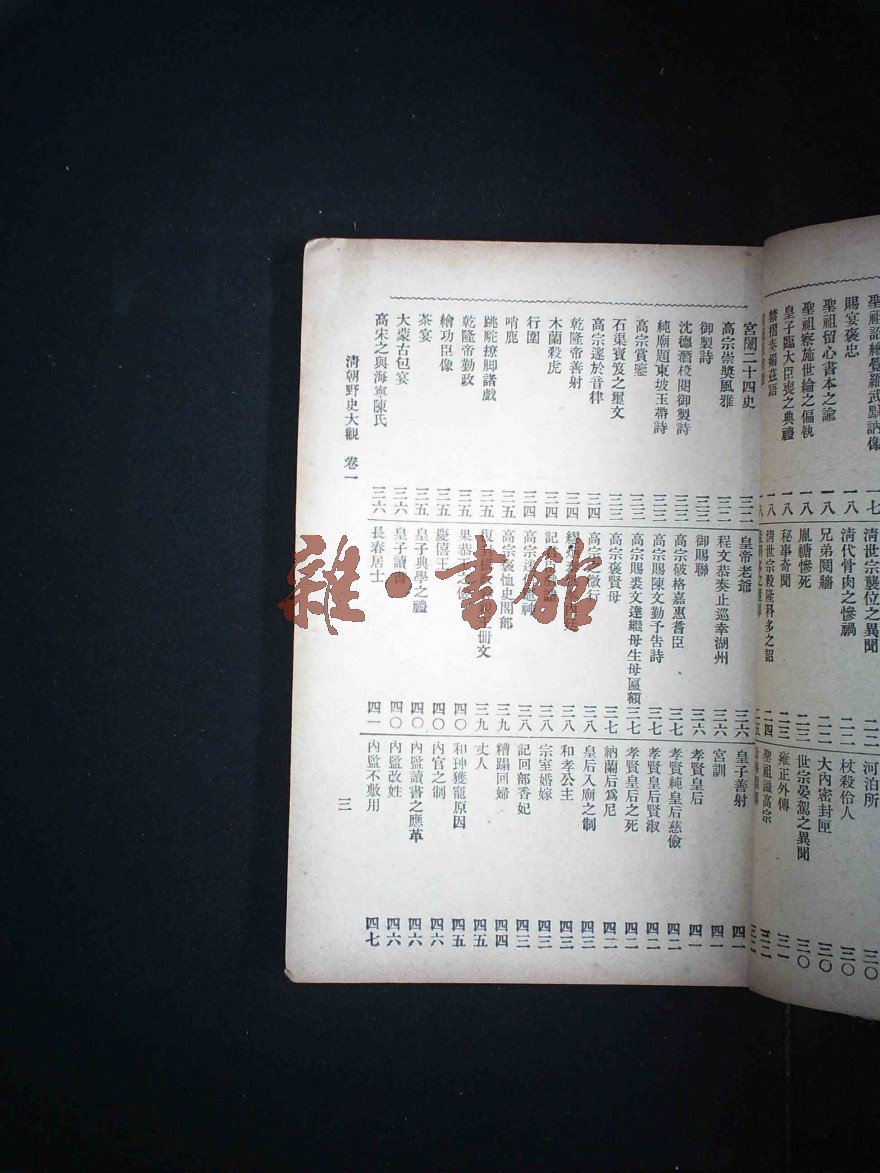 聖祖諮經覺羅武默訥像 一七
賜宴褒忠 一八
聖祖留心書本之諭 一八
聖祖察施世綸之偏執 一八
皇子臨大臣喪之典禮 一八
禁摺奏綺茲語 一八
清世宗襲位之異聞 二二
清代骨肉之慘禍 二二
兄弟鬩牆 二二
胤禟慘死 二三
秘事奇聞 二三
清世宗殺隆科多之詔 二四
河泊所 三〇
杖殺伶人 三〇
大內密封匣 三〇
世宗晏駕之異聞 三〇
雍正外傳 三一
聖祖識高宗 三二
宮闈二十四史 三二
高宗崇獎風雅 三二
御製詩 三三
沈德潛校閱御製詩 三三
純廟題東坡玉帶詩 三三
高宗賞鑒 三三
石渠寶笈之璽文 三三
高宗邃於音律 三四
乾隆帝善射 三四
木蘭殺虎 三四
行圍 三四
哨鹿 三五
跳駝撩脚諸戲 三五
乾隆帝勤政 三五
繪功臣像 三五
茶宴 三五
大蒙古包宴 三六
高宗之與海寧陳氏 三六
皇帝老爺 三六
程文恭奏止巡幸湖州 三六
御賜聯 三六
高宗破格嘉惠耆臣 三七
高宗賜陳文勤予告詩 三七
高宗賜裘文達繼母生母匾額 三七
高宗褒賢母 三七
高宗微行 三八
三八
記 三八
高宗 神 三八
高宗褒恤史閣部 三九
復 冊文 三九
果恭王之 四〇
慶僖王 四〇
皇子典學之禮 四〇
皇子讀書 四〇
長春居士 四一
皇子善射 四一
宮訓 四一
孝賢皇后 四一
孝賢純皇后慈儉 四二
孝賢皇后賢淑 四二
孝賢皇后之死 四二
納蘭后為尼 四二
皇后入廟之制 四三
和孝公主 四三
宗室婚嫁 四三
記回部香妃 四三
糟蹋回婦 四四
丈人 四五
和珅獲寵原因 四五
內官之制 四六
內監讀書之應革 四六
內監改姓 四六
內監不敷用 四七
清朝野史大觀 卷一 三
雜·書館